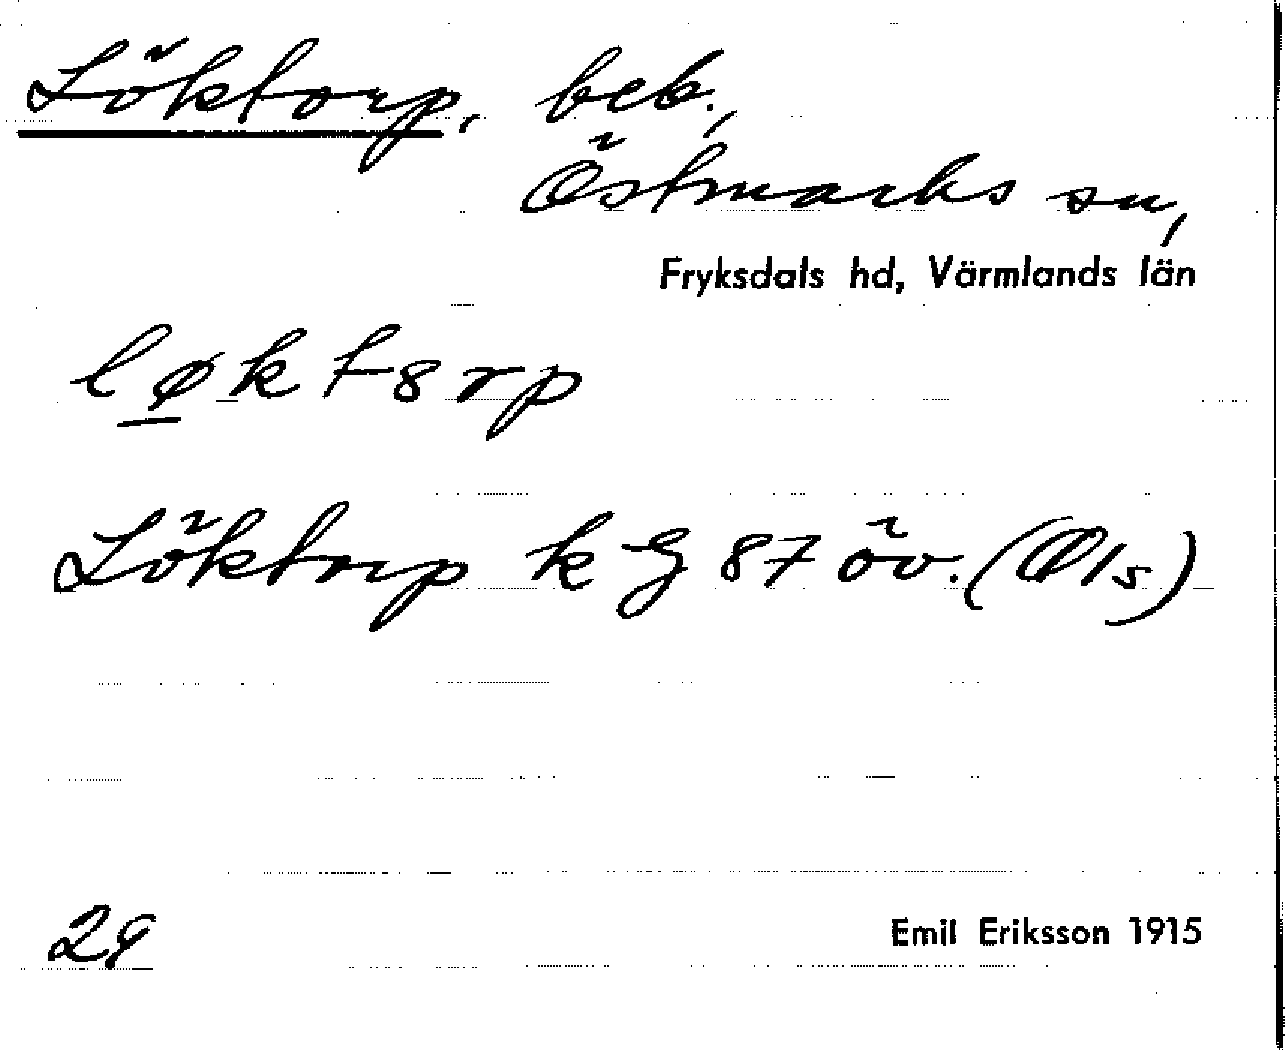 Löktorp, beb.,
Östmarks sn,
Fryksdals hd, Värmlands län
løktorp
Löktorp k G 87 öv. (Øls)
29
Emil Eriksson 1915